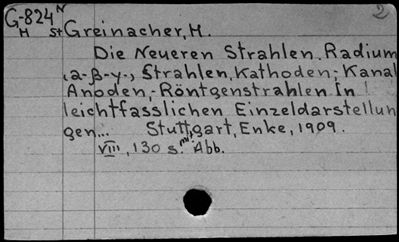 G-824 N 2
H St Greinacher, H.
Die Neueren Strahlen. Radium
(a-β-γ-), Strahlen, Kathoden-, Kanal
Anoden-, Röntgenstrahlen In
leichtfasslichen Einzeldarstellun
gen... Stuttgart, Enke, 1909.
VIII, 130 s. mit Abb.